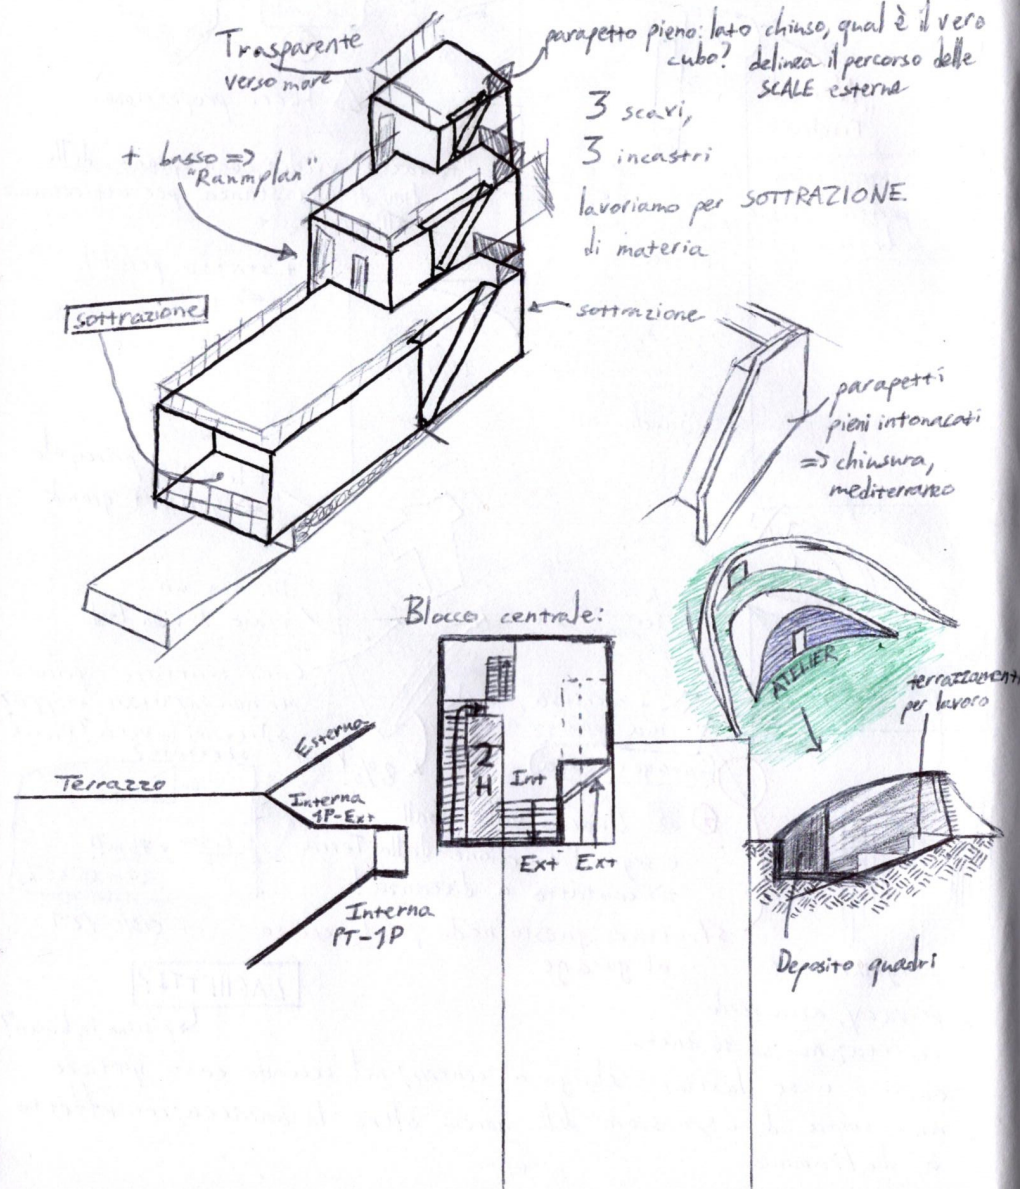 Trasparente
verso mare
parapetto pieno: lato chiuso, qual è il vero
cubo? delinea il percorso delle
SCALE esterne
3 scavi,
3 incastri
lavoriamo per SOTTRAZIONE.
di materia
+ basso =>
"Raumplan"
sottrazione
sottrazione
parapetti
pieni intonacati
=> chiusura,
mediterraneo
Blocco centrale:
ATELIER
terrazzamenti
per lavoro
Esterna
Terrazzo
Interna
1P-Ext
2
H
Int
Ext Ext
Interna
PT-1P
Deposito quadri